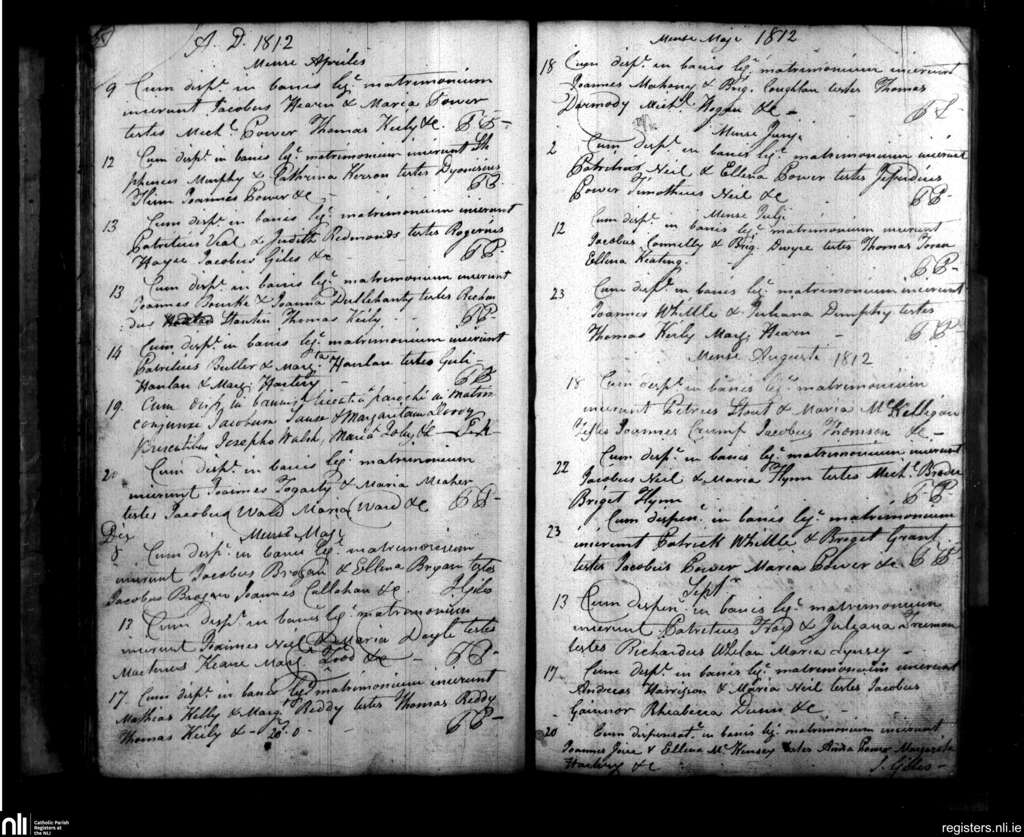 A. D. 1812
Mense Aprilis
9 Cum dispe. in bancis leg. matrimonium
inierunt Jacobus Hearn & Maria Power
testes Michl. Power Thomas Keily &c.
12 Cum dispe. in bancis leg. matrimonium inierunt Ste
phenus Murphy & Cathrina testes Dyonisius
Joannes Power &c
13 Cum dispe. in bancis leg. matrimonium inierunt
Patritius Veal & Judith Redmonds testes Rogerus
Hayse Jacobus Giles &c
13 Cum dispe. in bancis leg. matrimonium inierunt
Joannes & Joanna Dullehanty testes Richar
dus Thomas Keily
14 Cum dispe. in bancis leg. matrimonium inierunt
Patritius Butler & Margta. Hanlan testes Guli-
Hanlan & Marg. Hartery
19. Cum disp. in bannis licentia parochi in matrim
conjunxe Jacobum & Margaritam
Josepho Walsh, Maria &c
20 Cum dispe. in bancis leg. matrimonium
inierunt Joannes Fogarty & Maria Meaher
testes Jacobus Ward Maria Ward &c
Mense Maj.
Die
8 Cum dispe. in bancis leg. matrimonium
inierunt Jacobus Brogan & Ellena Bryan testes
Jacobus Brogan Joannes Callahan &c. J Giles
12 Cum dispe. in bancis leg. matrimonium
inierunt Joannes Neil & Maria Doyle testes
Keane Marg. &c
17. Cum dispe. in bancis leg. matrimonium inierunt
Mathias Kelly & Marg. Reddy testes Thomas Reddy
Thomas Keily &
Mense Maje 1812
18 Cum dispe. in bancis leg. matrimonium inierunt
Joannes Mahony & Brig. Coughlan testes Thomas
Dermody Michl. Hogan &c
Mense Junj.
2 Cum dispe. in bancis leg. matrimonium inierunt
Patritius Neil & Ellena Power testes
Power Timothius Neil &c
Mense Julj.
12 Cum dispe. in bancis leg. matrimonium inierunt
Jacobus Connelly & Brig. Dwyre testes Thomas
Ellena Keating.
23 Cum dispe. in bancis leg. matrimonium inierunt
Joannes Whittle & Juliana Dumphy testes
Thomas Keily Marg. Hearn
Mense Auguste 1812
18 Cum dispe. in bancis leg. matrimonium
inierunt Petrus Stout & Maria McKelligan
testes Joannes Crump Jacobus Thomson &c
22 Cum dispe. in bancis leg. matrimonium inierunt
Jacobus Neil & Maria Flynn testes Michl.
Briget Flynn
23 Cum dispen. in bancis leg. matrimonium
inierunt Patrick Whittle & Briget Grant
testes Jacobus Power Maria Power &c
Septr
13 Cum dispen. in bancis leg. matrimonium
inierunt Patritius & Juliana
testes Richardus Whelan Maria Lynsey
17 Cum dispe. in bancis leg. matrimonium inierunt
Andreas Harrison & Maria Neil testes Jacobus
Gainnor Rheabecca Dunn &c
20 Cum dispensat. in bancis leg. matrimonium inierunt
Joannes & Ellena McKensey testes Power Margarita
Hartery &c J. Giles
nli
Catholic Parish
Registers at
the NLI
registers.nli.ie